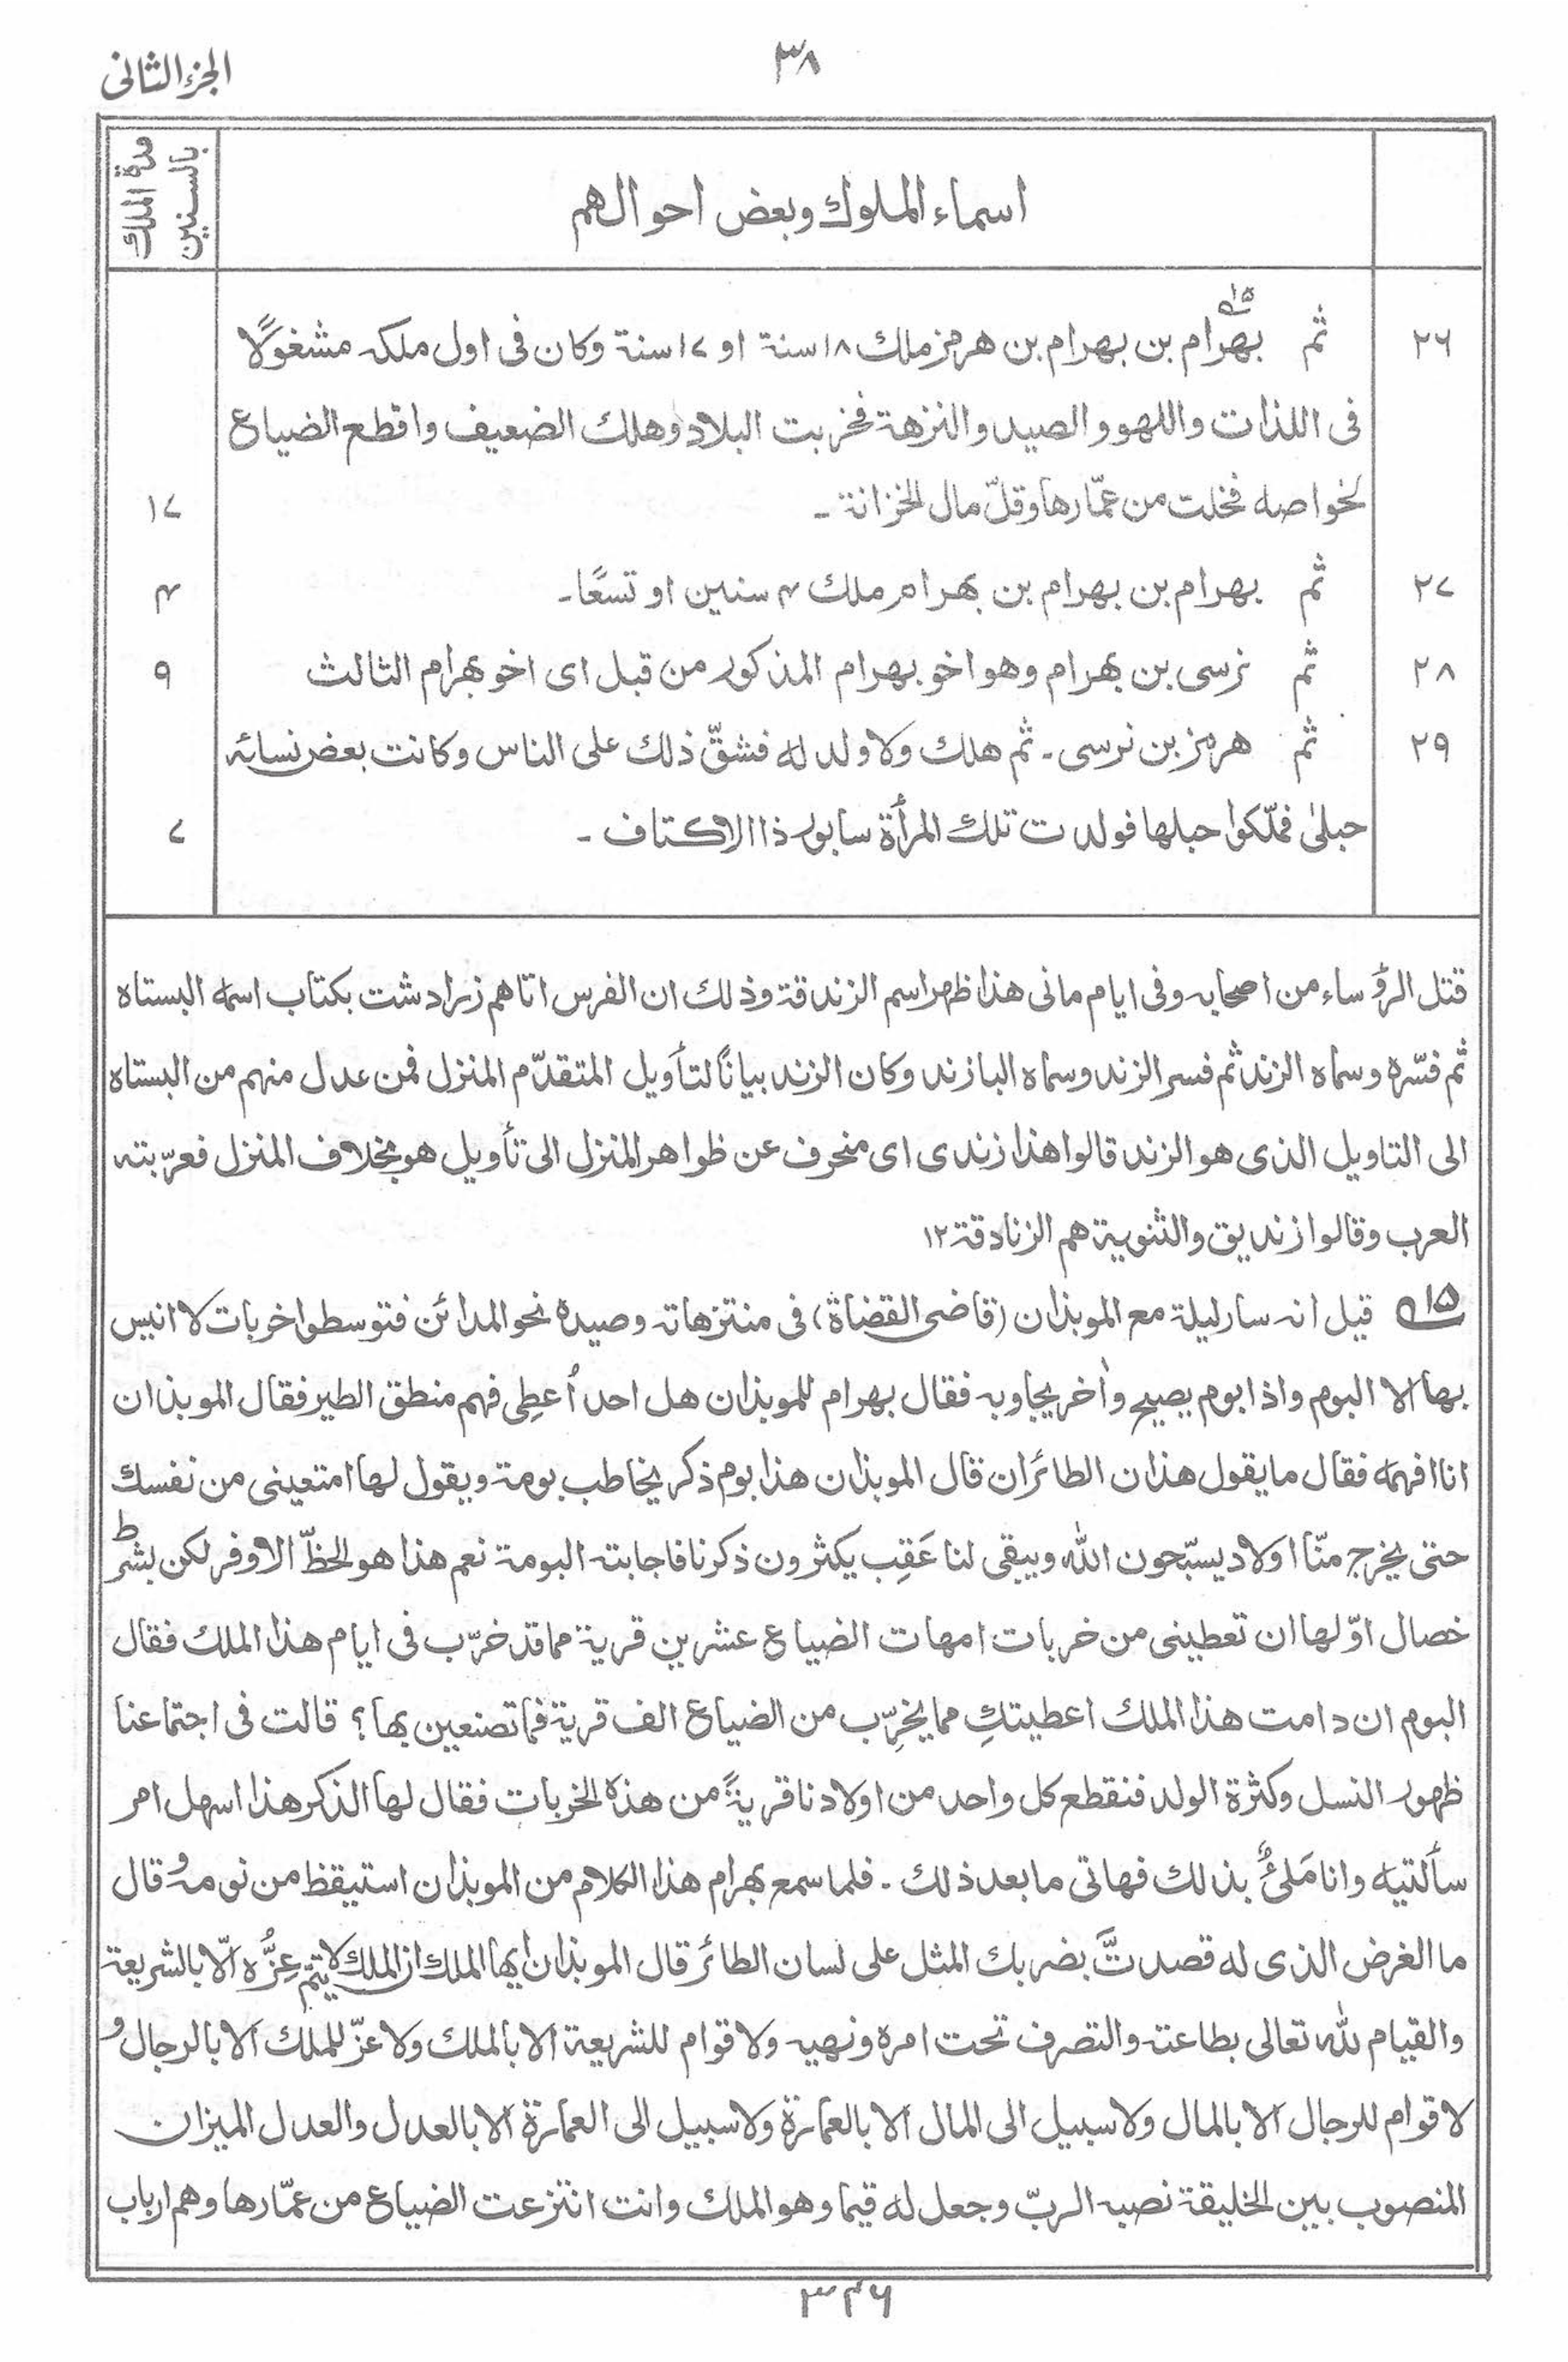 ٣٨
الجزء الثانى
اسماء الملوك وبعض احوالهم
مدة الملك بالسنين
٢٦ ثم بهرام بن بهرام بن هرمز ملك ١٨ سنة او ١٧ سنة وكان فى اول ملكه مشغولًا
فى اللذات واللهو والصيد والنزهة فخربت البلاد وهلك الضعيف واقطع الضياع
لخواصه فخلت من عمّارها وقلّ مال الخزانة۔ ١٧
٢٧ ثم بهرام بن بهرام بن بهرام ملك ٤ سنين او تسعًا۔ ٤
٢٨ ثم نرسى بن بهرام وهو اخو بهرام المذكور من قبل اى اخو بهرام الثالث ٩
٢٩ ثم هرمز بن نرسى۔ ثم هلك ولا ولد له فشقّ ذلك على الناس وكانت بعض نسائه
حبلىٰ فملّكوا حبلها فولدت تلك المرأة سابور ذا الاكتاف۔ ٧
قتل الرؤساء من اصحابه وفى ايام مانى هذا ظهر اسم الزندقة وذلك ان الفرس اتاهم زرادشت بكتاب اسمه البستاه
ثم فسّره وسماه الزند ثم فسر الزند وسماه البازند وكان الزند بيانًا لتأويل المتقدّم المنزل فمن عدل منهم من البستاه
الى التاويل الذى هو الزند قالوا هذا زندى اى منحرف عن ظواهر المنزل الى تأويل هو بخلاف المنزل فعرّبته
العرب وقالوا زنديق والثنوية هم الزنادقة ١٢
١٥ قيل انه سار ليلة مع الموبذان (قاضى القضاة) فى منتزهاته وصيده نحو المدائن فتوسطوا خربات لا انيس
بها الا البوم واذا بوم يصيح واٰخر يجاوبه فقال بهرام للموبذان هل احد اُعطِى فهم منطق الطير فقال الموبذان
انا افهمه فقال ما يقول هذان الطائران قال الموبذان هذا بوم ذكر يخاطب بومة ويقول لها امتعينى من نفسك
حتى يخرج منّا اولاد يسبّحون الله ويبقى لنا عَقِب يكثرون ذكرنا فاجابته البومة نعم هذا هو الحظّ الاوفر لكن بشرط
خصال اوّلها ان تعطينى من خربات امهات الضياع عشرين قرية مما قد خرّب فى ايام هذا الملك فقال
البوم ان دامت هذا الملك اعطيتكِ مما يخرِّب من الضياع الف قرية فما تصنعين بها؟ قالت فى اجتماعنا
ظهور النسل وكثرة الولد فنقطع كل واحد من اولادنا قريةً من هذه الخربات فقال لها الذكر هذا اسهل امر
سألتيه وانا مَلئٌ بذلك فهاتى ما بعد ذلك۔ فلما سمع بهرام هذا الكلام من الموبذان استيقظ من نومه وقال
ما الغرض الذى له قصدتَّ بضربك المثل على لسان الطائر قال الموبذان ايها الملك ان الملك لا يتمّ عِزُّه الّا بالشريعة
والقيام لله تعالى بطاعته والتصرف تحت امره ونهيه ولا قوام للشريعة الا بالملك ولا عزّ للملك الا بالرجال و
لا قوام للرجال الا بالمال ولا سبيل الى المال الا بالعمارة ولا سبيل الى العمارة الا بالعدل والعدل الميزان
المنصوب بين الخليقة نصبه الربّ وجعل له قيما وهو الملك وانت انتزعت الضياع من عمّارها وهم ارباب
٣٤٦